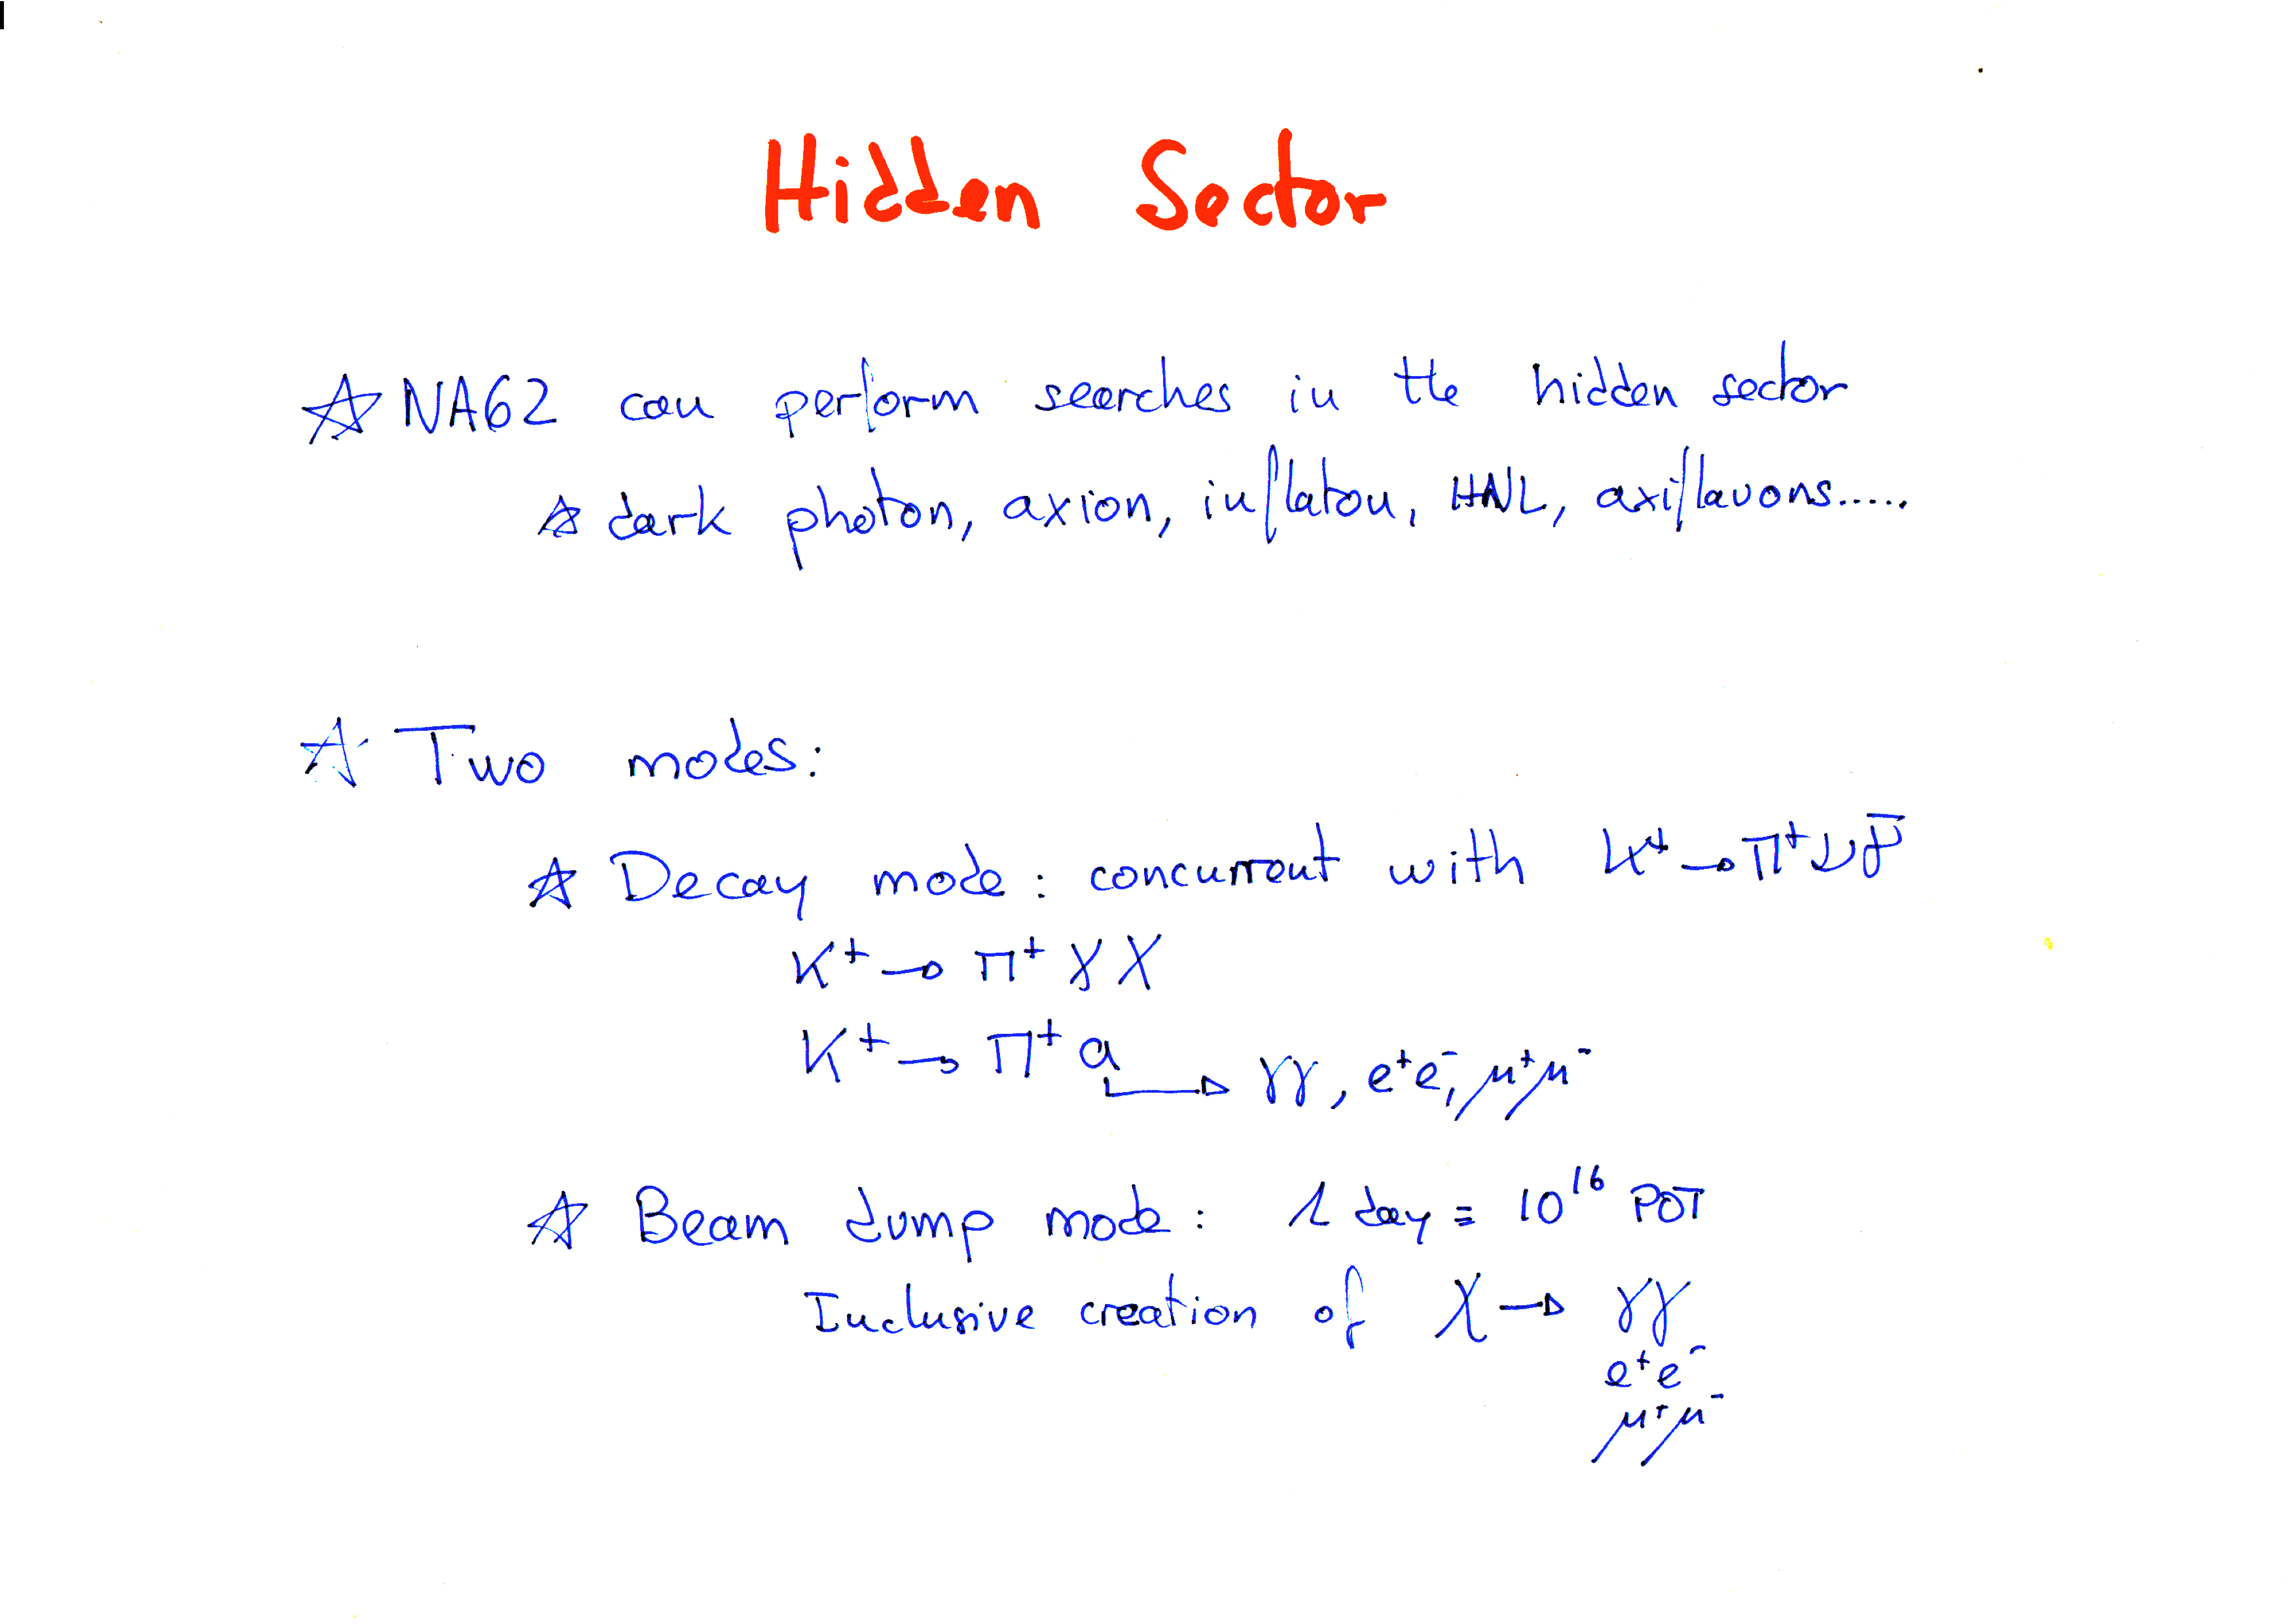 Hidden Sector
☆ NA62 can perform searches in the hidden sector
☆ dark photon, axion, inflaton, HNL, axiflavons.....
☆ Two modes:
☆ Decay mode: concurrent with K⁺ → π⁺νν̅
K⁺ → π⁺ γ X
K⁺ → π⁺ a
↳ γγ, e⁺e⁻, μ⁺μ⁻
☆ Beam dump mode: 1 day = 10¹⁶ POT
Inclusive creation of X → γγ
e⁺e⁻
μ⁺μ⁻